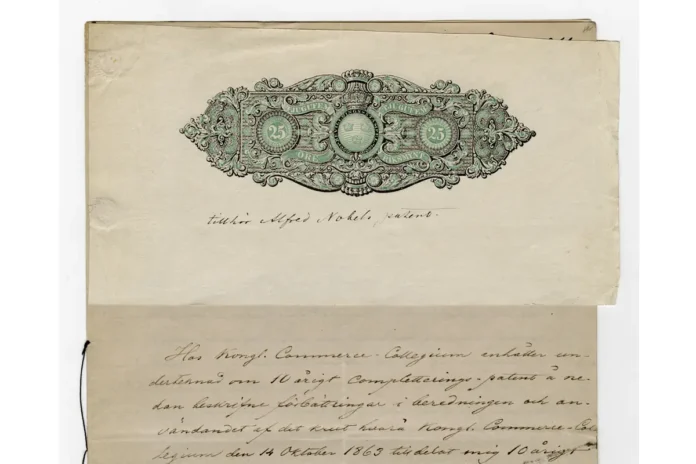 25
25
ÖRE
tillhör Alfred Nobels patent.
Hos Kongl. Commerce-Collegium anhåller un-
dertecknad om 10 årigt Completterings-patent å ne-
dan beskrifne förbättringar i beredningen och an-
vändandet af det krut hvarå Kongl. Commerce-Col-
legium den 14 Oktober 1863 tilldelat mig 10 årigt